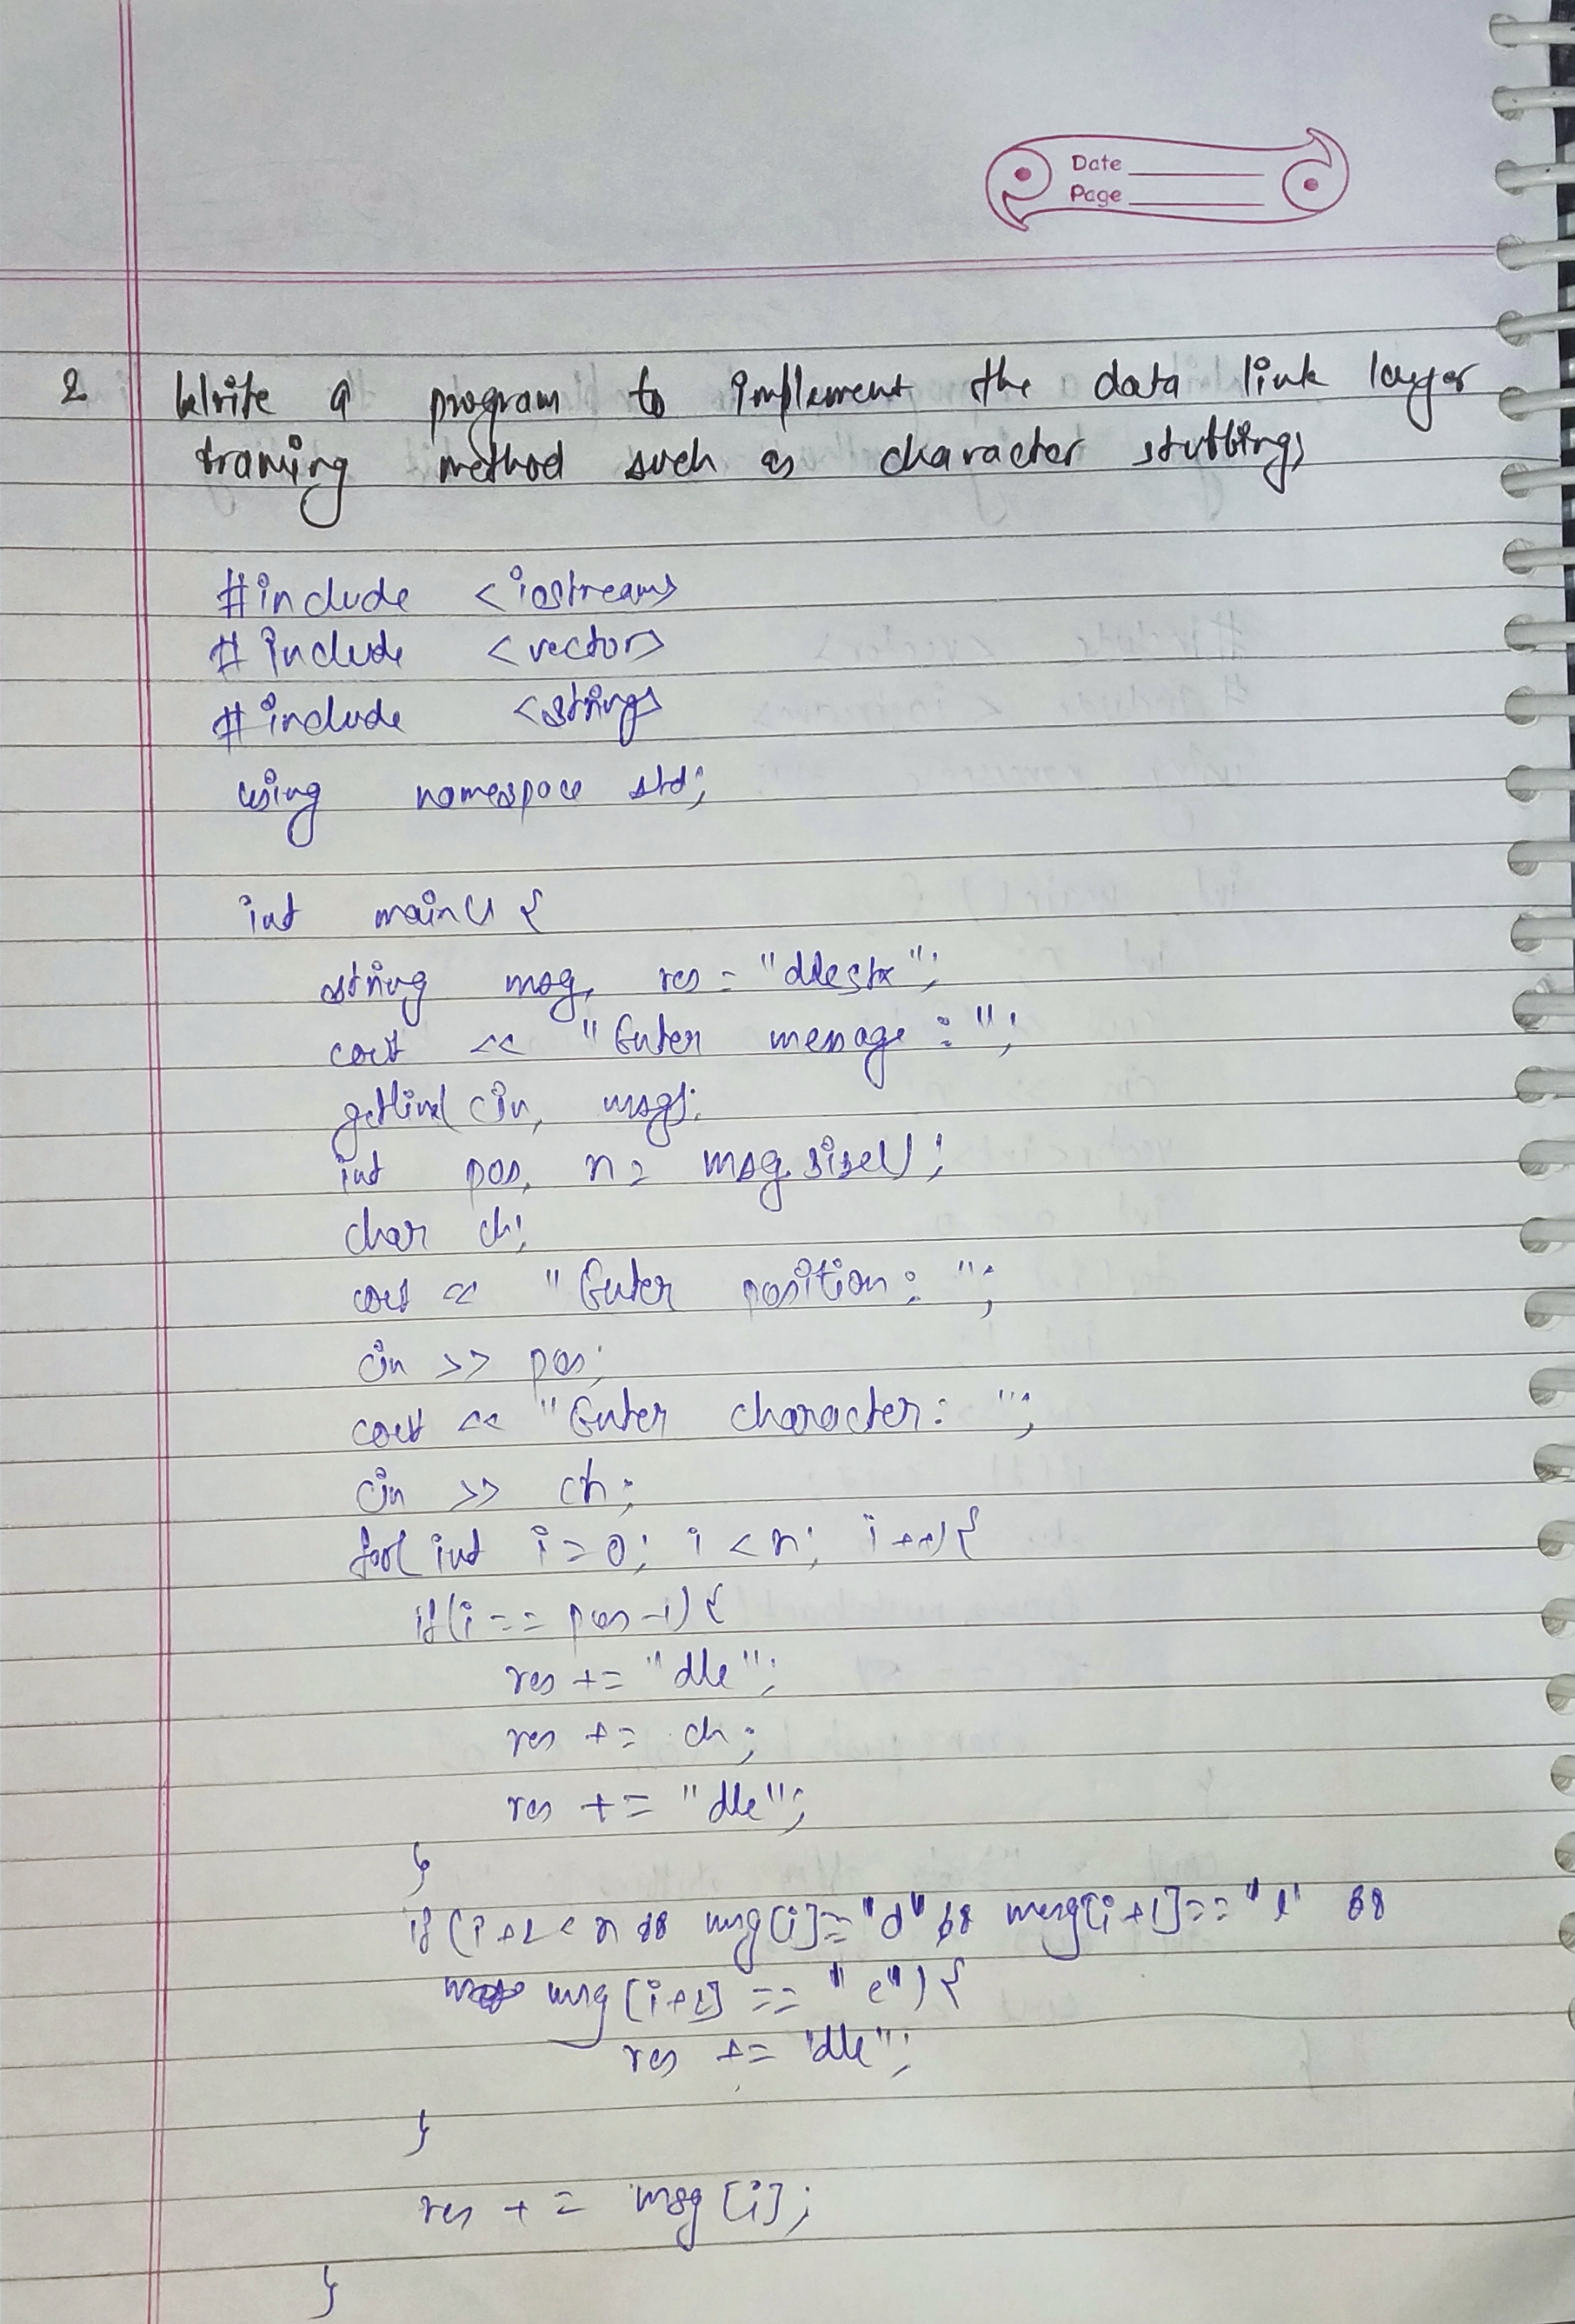 Date
Page
2 Write a program to implement the data link layer
framing method such as character stuffing,
#include <iostream>
#include <vector>
#include <string>
using namespace std;
int main() {
string msg, res = "dlestx";
cout << "Enter message : ";
getline(cin, msg);
int pos, n = msg.size();
char ch;
cout << "Enter position : ";
cin >> pos;
cout << "Enter character : ";
cin >> ch;
for(int i=0; i<n; i++){
if(i == pos-1){
res += "dle";
res += ch;
res += "dle";
}
if(i+2 < n && msg[i]=="d" && msg[i+1]=="l" &&
msg[i+2] == "e"){
res += "dle";
}
res += msg[i];
}